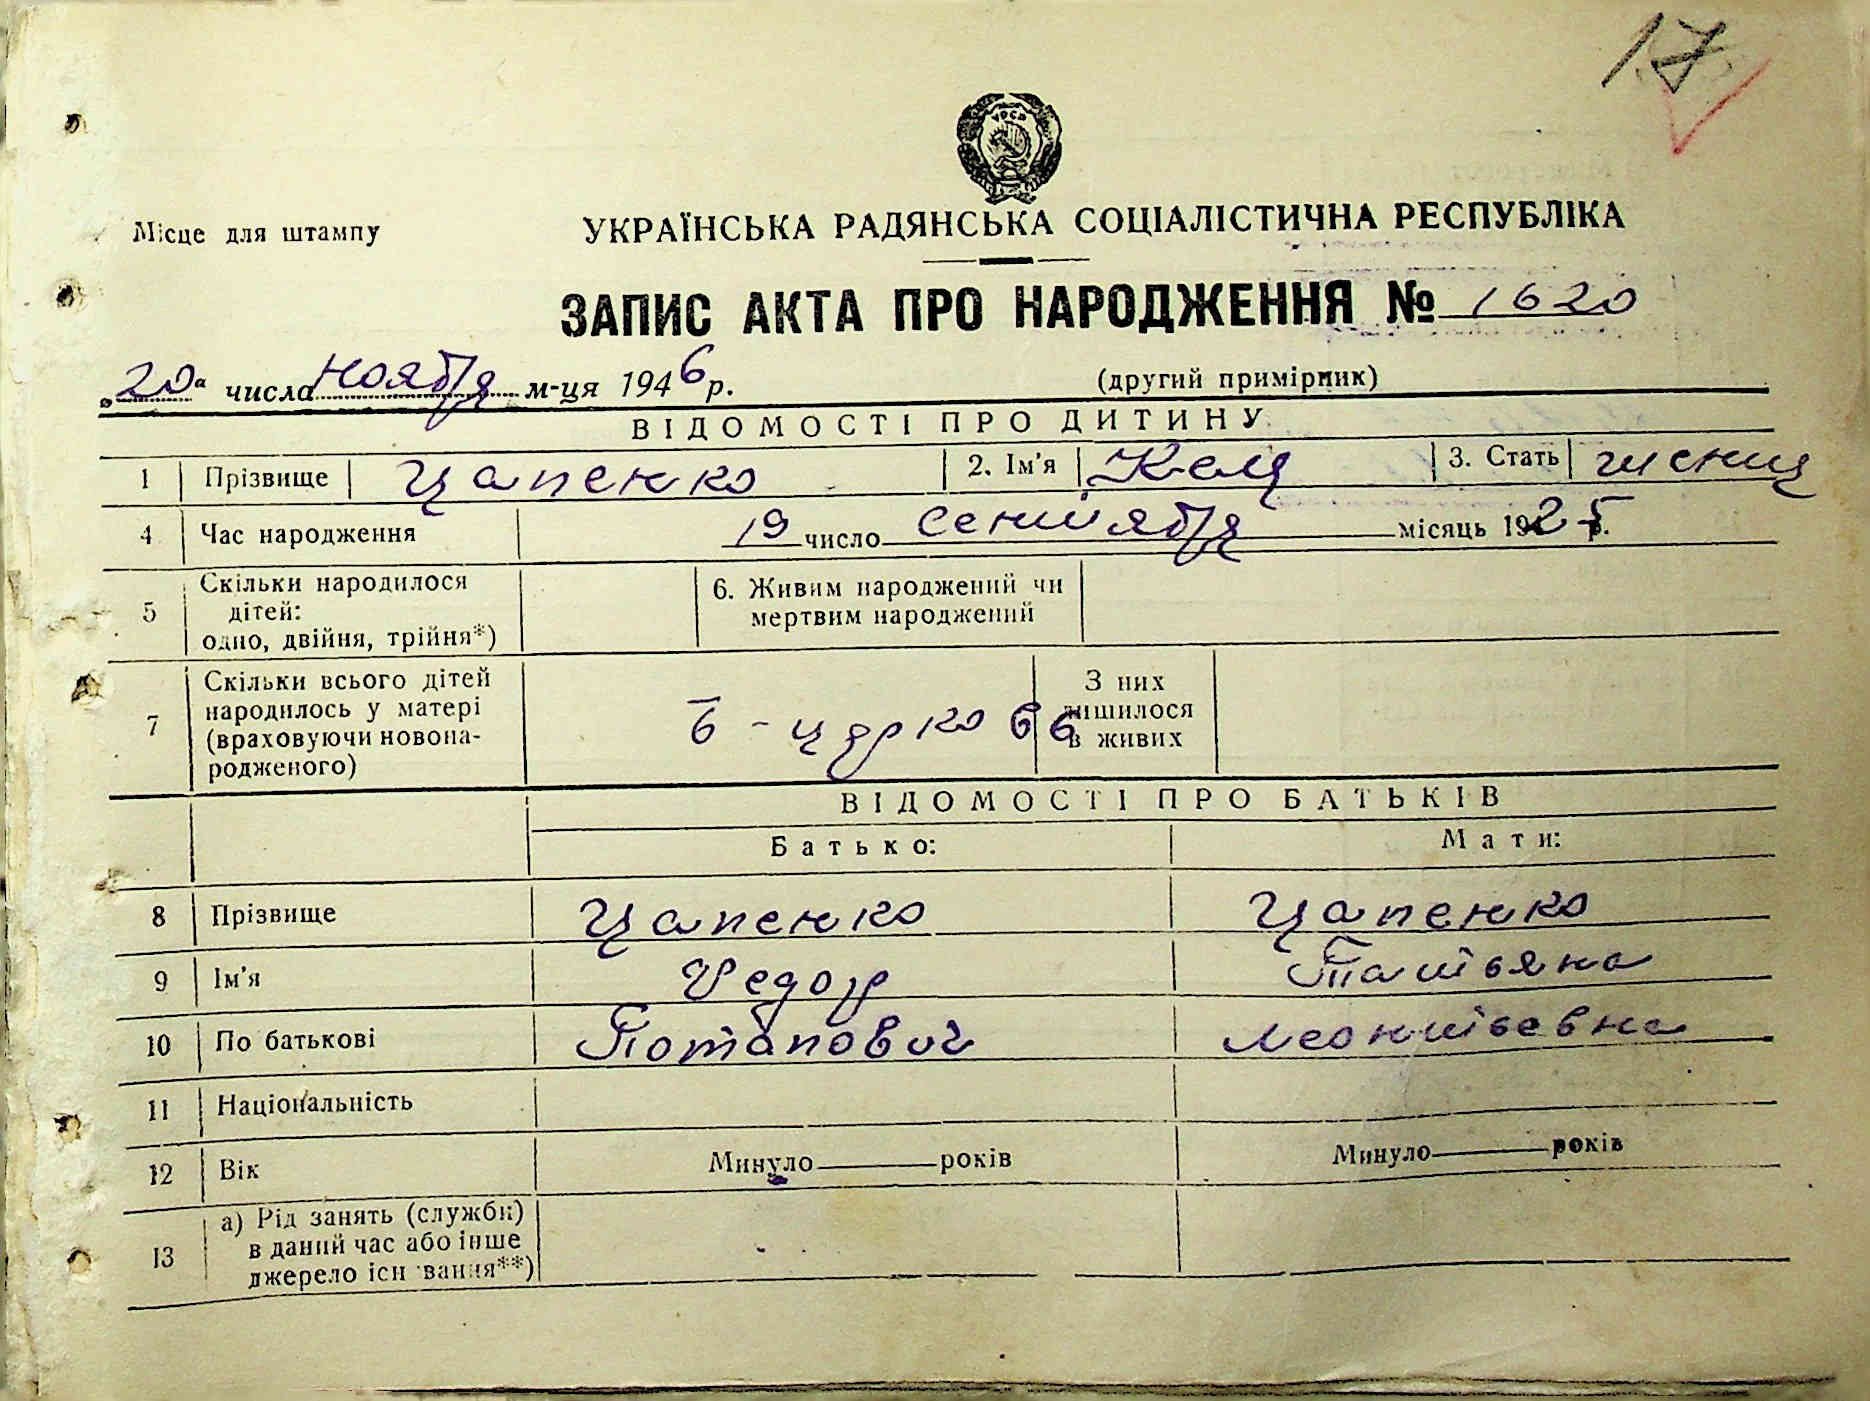 17
УРСР
Місце для штампу
УКРАЇНСЬКА РАДЯНСЬКА СОЦІАЛІСТИЧНА РЕСПУБЛІКА
ЗАПИС АКТА ПРО НАРОДЖЕННЯ № 1620
„20" числа ноября м-ця 1946 р. (другий примірник)
ВІДОМОСТІ ПРО ДИТИНУ
1 Прізвище Цапенко 2. Ім'я 3. Стать
4 Час народження 19 число сентября місяць 1925 р.
5 Скільки народилося дітей: одно, двійня, трійня*) 6. Живим народжений чи мертвим народжений
7 Скільки всього дітей народилось у матері (враховуючи новонародженого) З них лишилося в живих
ВІДОМОСТІ ПРО БАТЬКІВ
Батько: Мати:
8 Прізвище Цапенко Цапенко
9 Ім'я Федор Татьяна
10 По батькові Потапович Леонтьевна
11 Національність
12 Вік Минуло років Минуло років
13 а) Рід занять (служби) в даний час або інше джерело існування**)